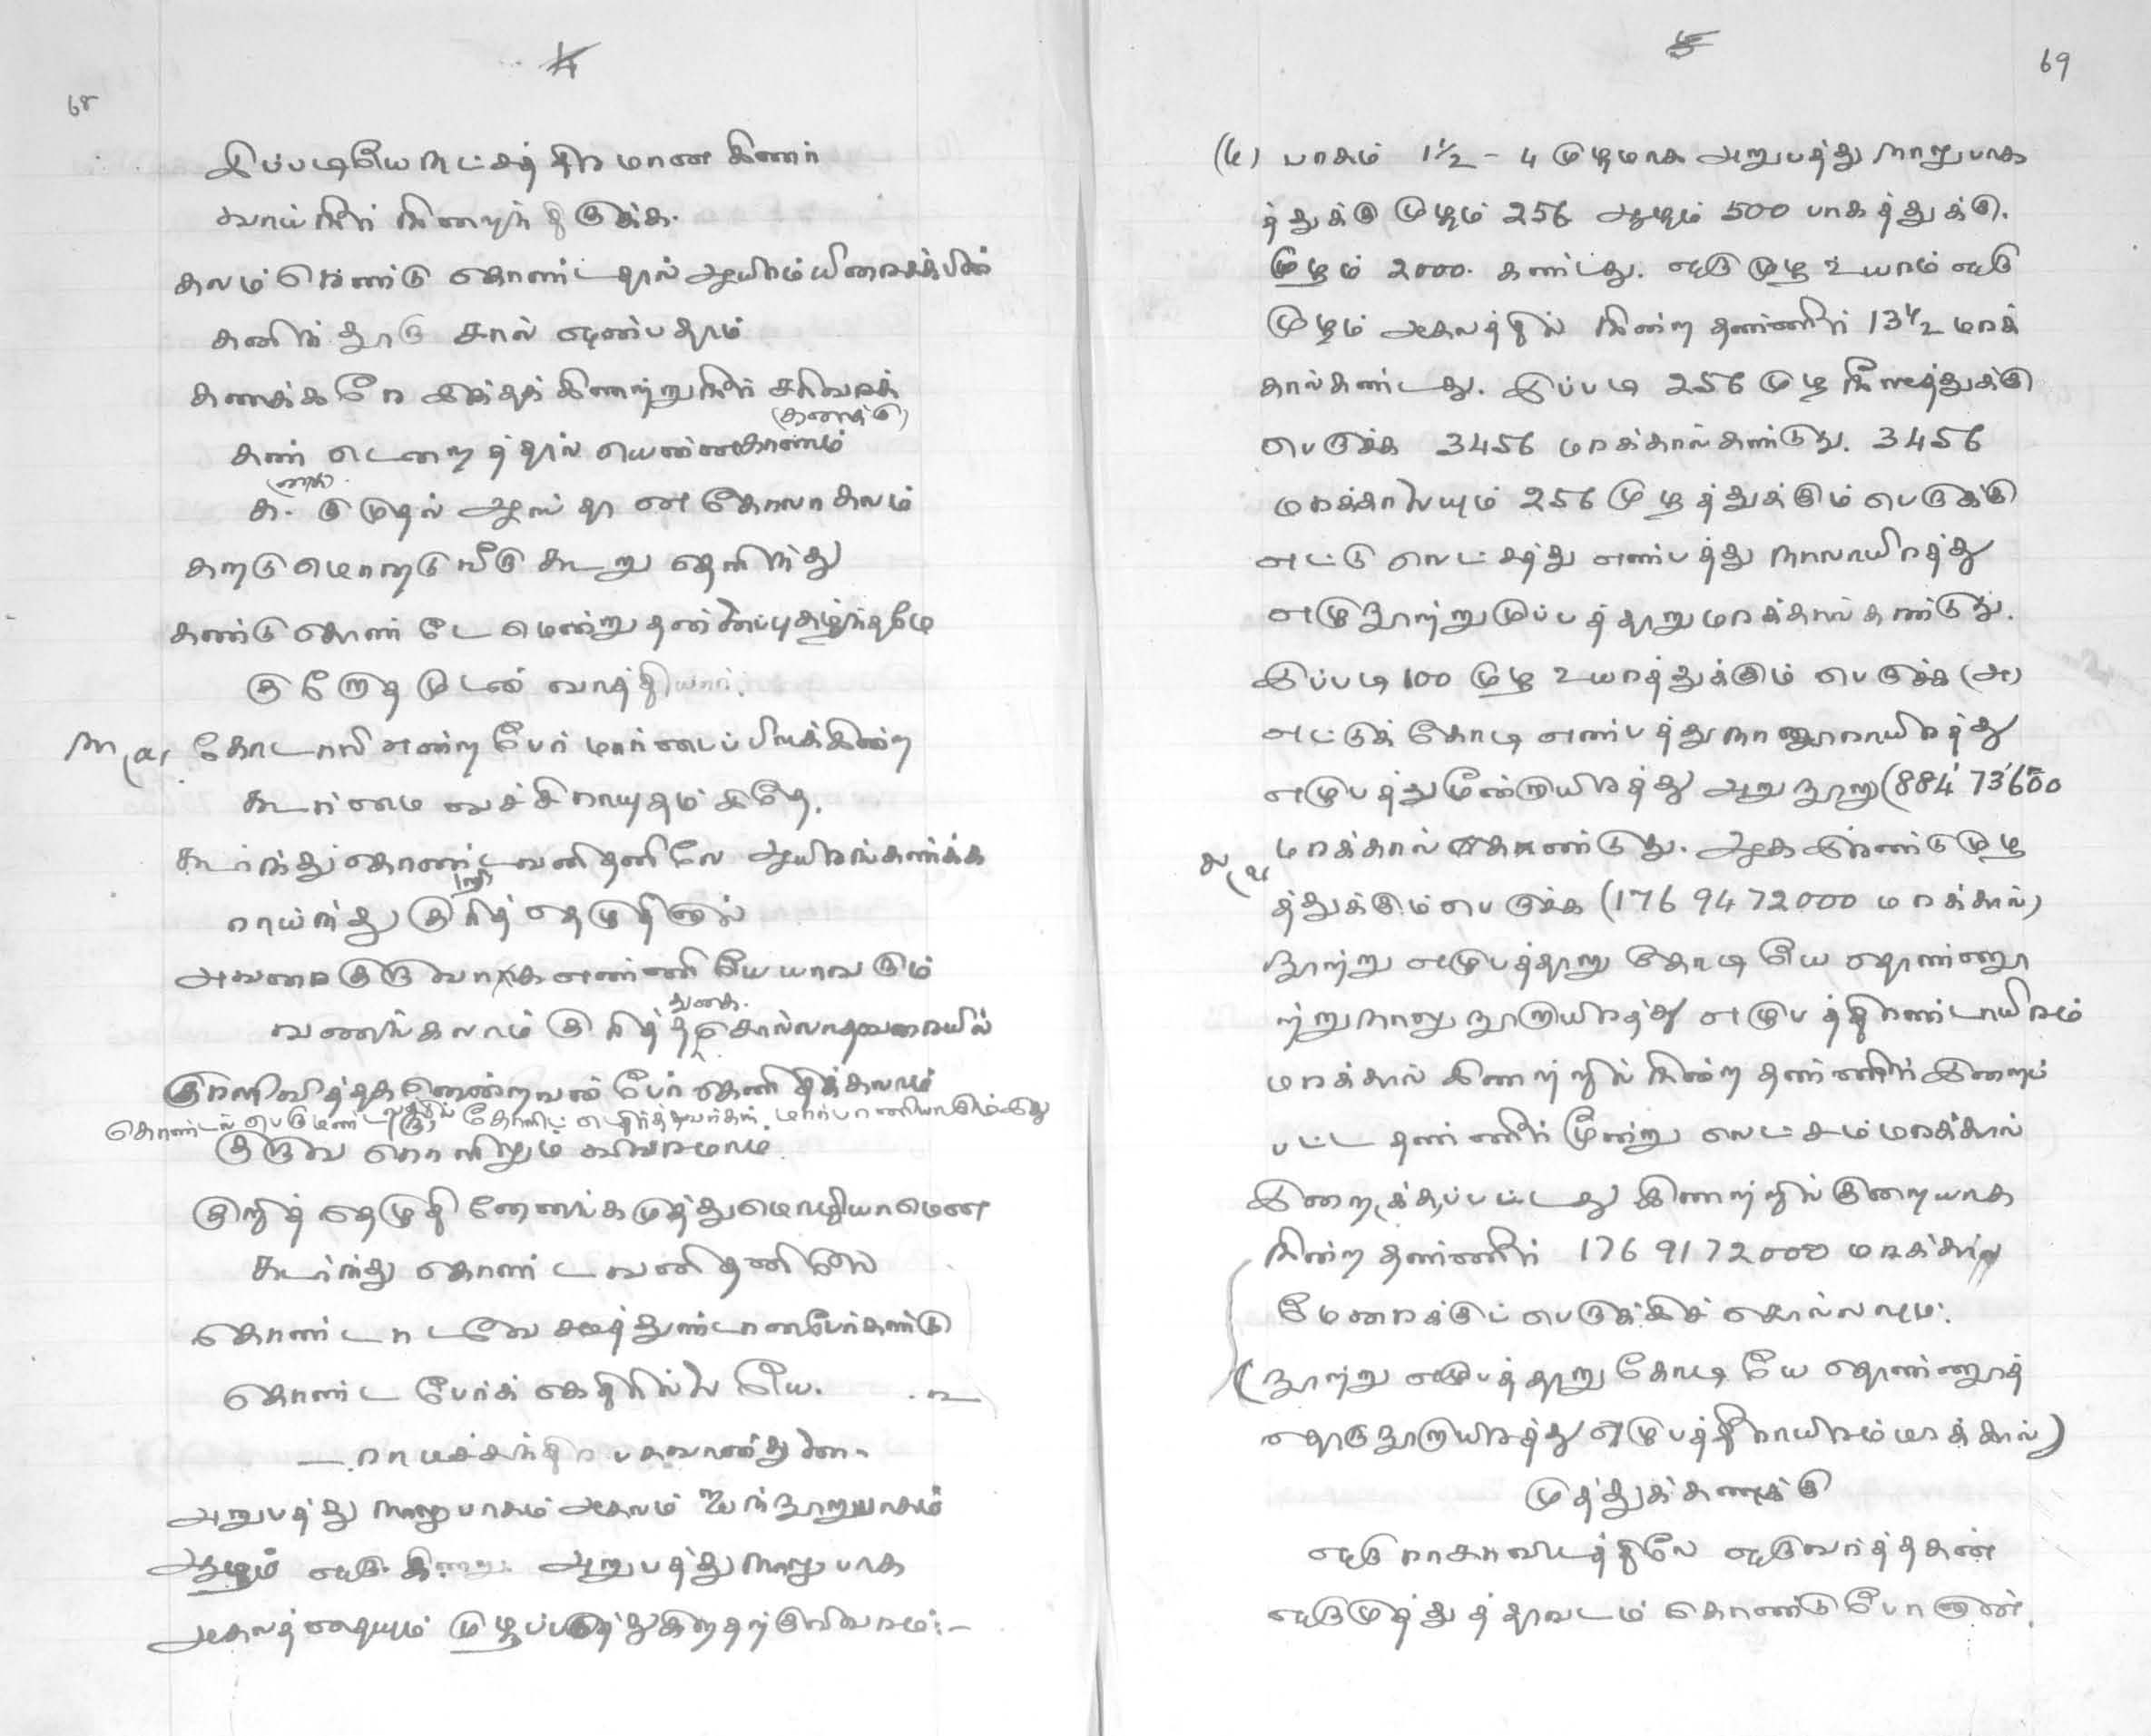 68
இப்படியே நட்சத்திரமான கிணர்
வாய்நீர் நிறைந் திருக்க.
கலம் ரெண்டு கொண்டதால் ஆயிரம்யிறைக்கபின்
கனிந் தூரு சால் எண்பதாம்
கணக்கரே இந்தக் கிணற்றுநீர் சரிவரக்
(கணக்கு)
கண் டெறைத்தால் யெண்ணவேணும்
குமுதில் ஆஸ்தான கோலாகலம்
கரடுமொரடுவீடு கூறு தெளிந்து
கண்டுகொண்டோமென்று தன்னைப்புகழ்ந்தாமே
குரேதமுடன் வாத்தியார்.
கோடாலி என்ற பேர் மார்பைப் பிளக்கின்ற
கூர்மை வச்சிராயுதம் கிதே.
கூர்ந்துகொண்டவனிதனிலே ஆயிரங்கணக்கு
ராய்ந்து குறித் தெழுதினால்
அவரை குருவாக எண்ணியே யாவரும்
வணங்கலாம் குறித்து சொல்லாதவகையில்
குருவ கொளிலும் விவரமாம்
குறித் தெழுதினேனங்க முத்துமொழியாமென
கூர்ந்து கொண்டவனிதனிலே
கொண்டாடவே சமர்த்துண்டானபேர்கண்டு
கொண்ட பேர்க் கெதிரில்லையே.
— ராமச்சந்திர பகவான்துணை -
அறுபத்து நாலுபாகம் அகலம் ஐந்நூறுபாகம்
ஆழம் ஒரு கிணறு. அறுபத்து நாலு பாக
அகலத்தையும் முழப்படுத்துகிறதற்குவிவரம்:-
69
பாகம் 1½ - 4 முழமாக அறுபத்து நாலுபாக
த்துக்கு முழம் 256 ஆழம் 500 பாகத்துக்கு.
முழம் 2000. கண்டது. ஒரு முழ உயரம் ஒரு
முழம் அகலத்தில் நின்ற தண்ணீர் 13½ மரக்
கால்கண்டது. இப்படி 256 முழ நீளத்துக்கு
பெருக்க 3456 மரக்கால் கண்டுது. 3456
மரக்காலையும் 256 முழத்துக்கும் பெருக்கு
எட்டு லெட்சத்து எண்பத்து நாலாயிரத்து
எழுநூற்றுமுப்பத்தாறு மரக்கால் கண்டுது.
இப்படி 100 முழ உயரத்துக்கும் பெருக்க (அ)
எட்டுக் கோடி எண்பத்துநாலுராயிரத்து
எழுபத்துமூன்றுயிரத்து அறுநூறு (884'73'600
மரக்கால் கொண்டுது. ஆக இரண்டுமுழ
த்துக்கும்பெருக்க (1769472000 மரக்கால்)
நூற்று எழுபத்தாறு கோடியே தொண்ணூ
ற்றுநாலு நூறுயிரத்து எழுபத்திரண்டாயிரம்
மரக்கால் கிணற்றில் நின்ற தண்ணீர் இறைப்
பட்ட தண்ணீர் மூன்று லெட்சம் மரக்கால்
இறைக்கப்பட்டது கிணற்றில் குறையாக
நின்ற தண்ணீர் 1769172000 மரக்கால்
மேரைக்குப் பெருக்கிச் சொல்லவும்.
(நூற்று எழுபத்தாறு கோடியே தொண்ணூத்
தொருநூறுயிரத்து எழுபத்தீராயிரம் மரக்கால்)
முத்துக்கணக்கு
ஒரு ராசாவிடத்திலே ஒருவர்த்தகன்
ஒருமுத்துத்தாவடம் கொண்டுபோனான்.